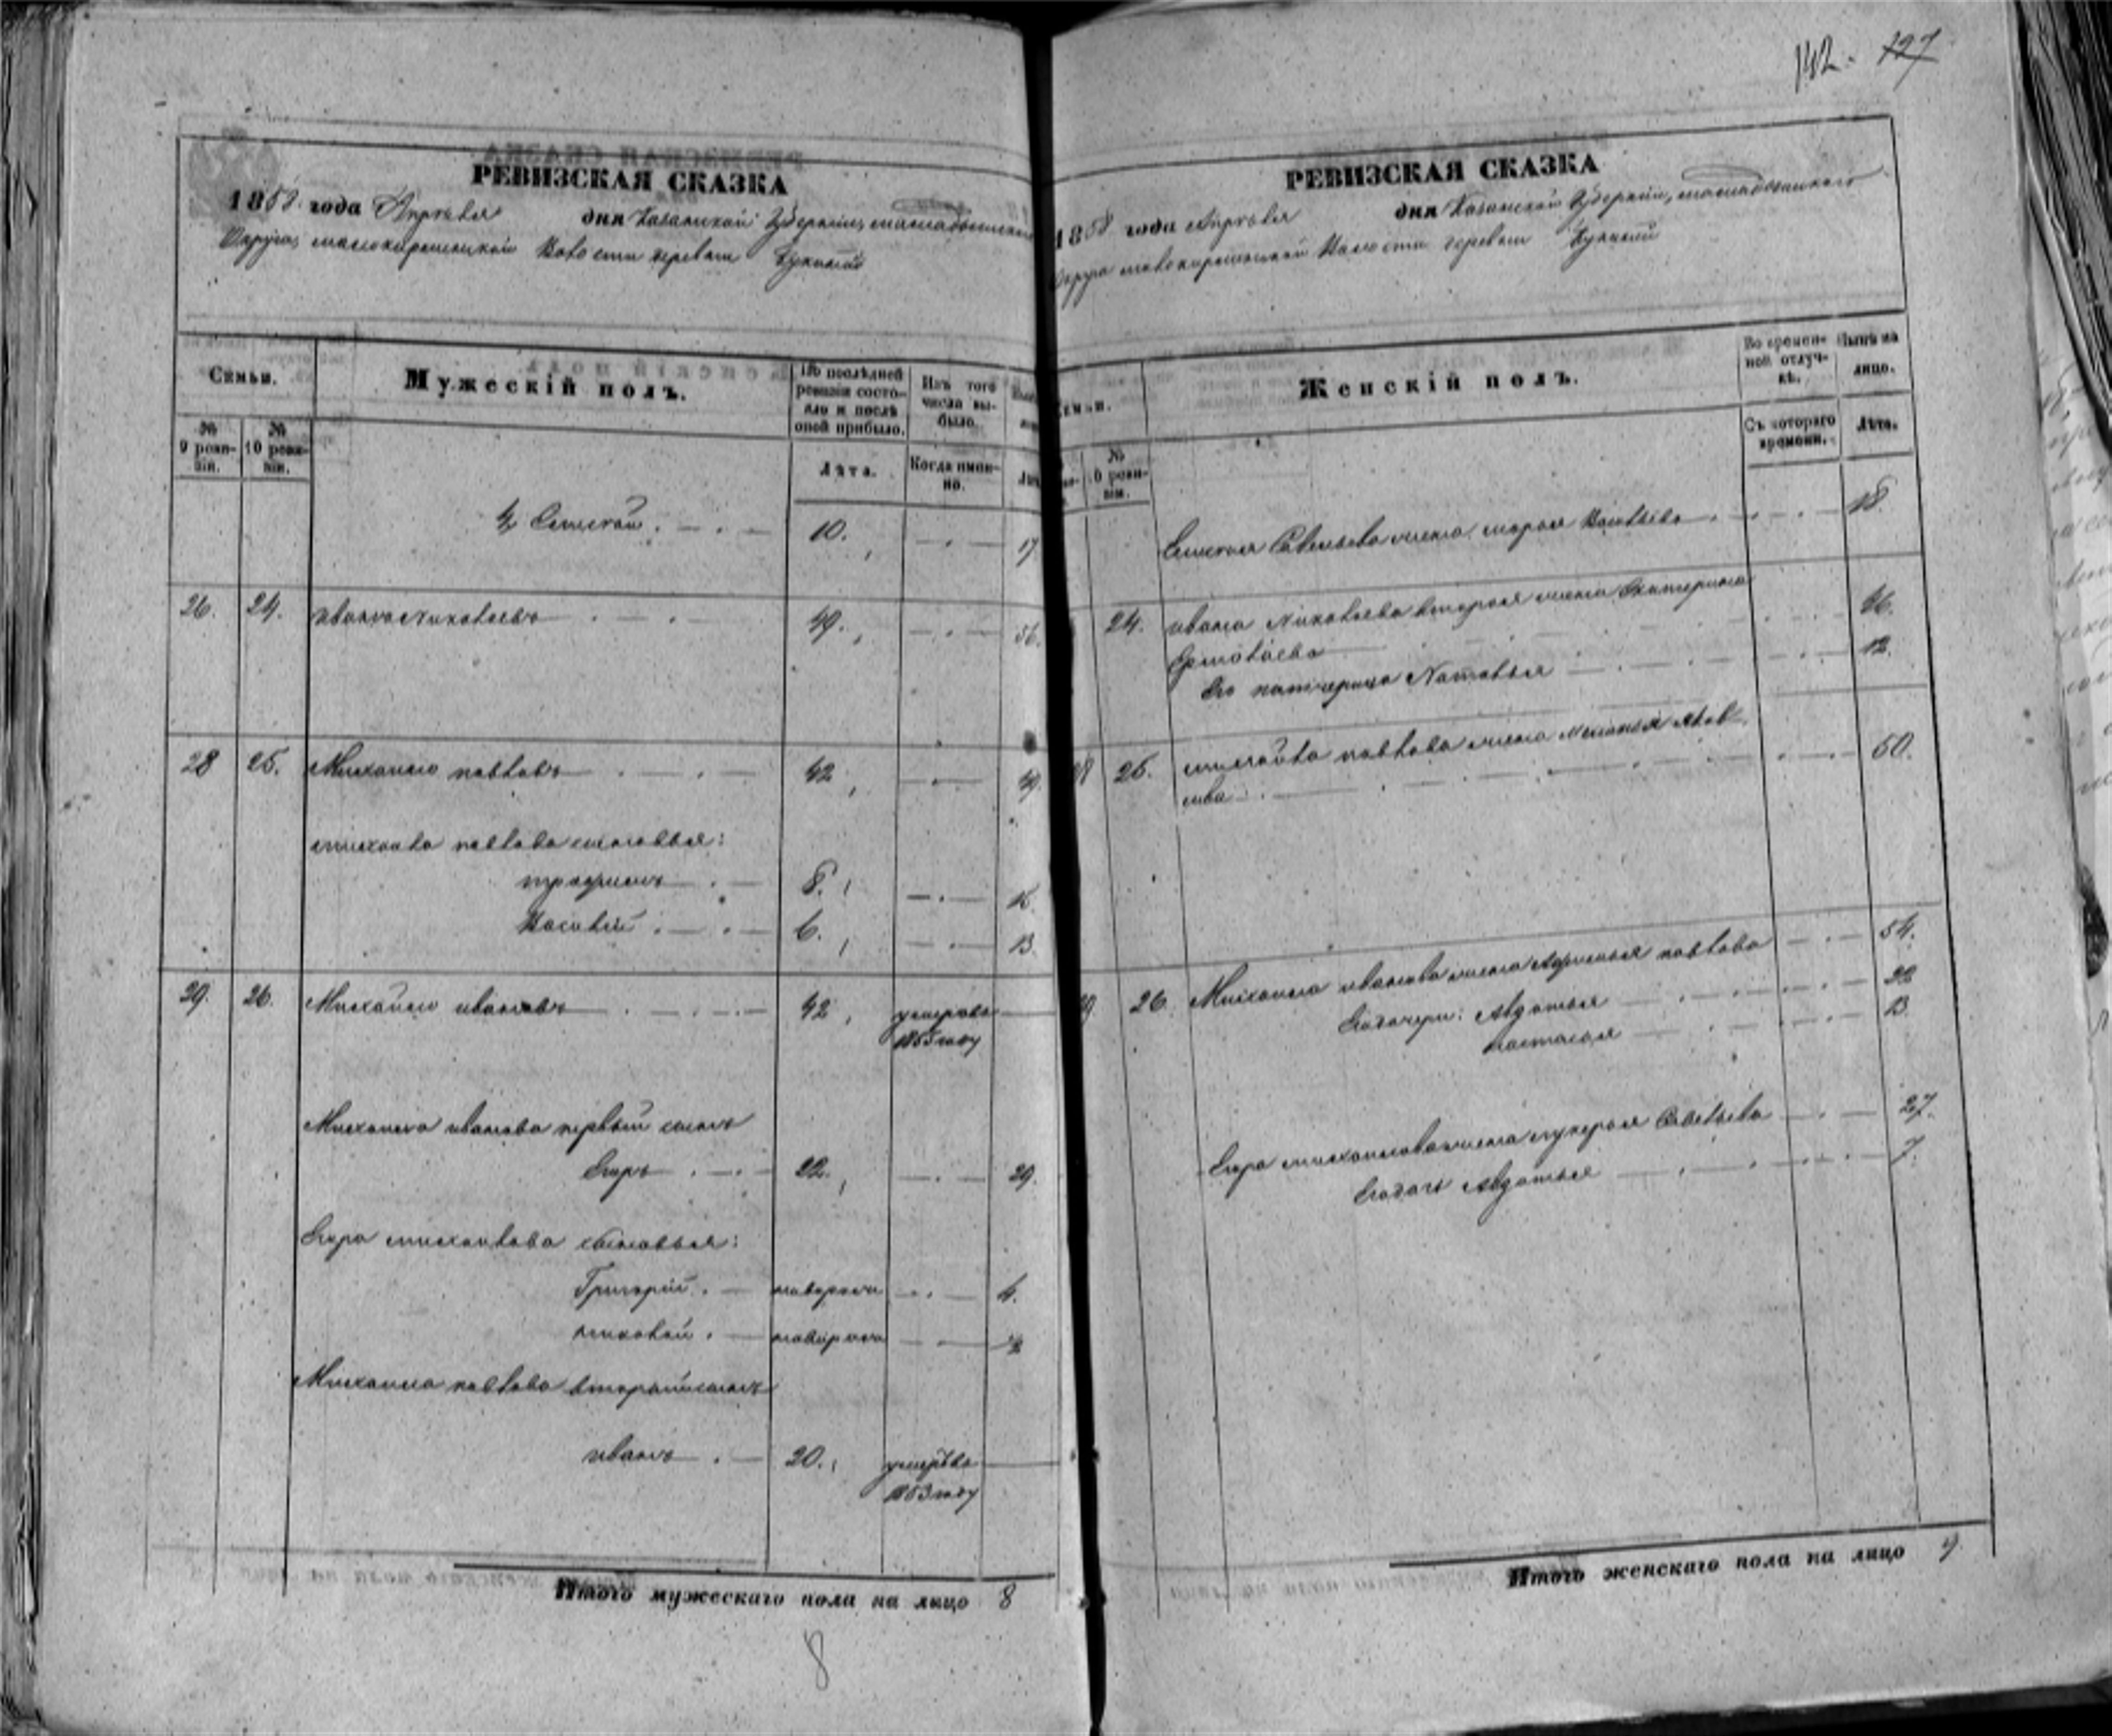 142. 127
РЕВИЗСКАЯ СКАЗКА
1858 года Апреля дня Казанской Губернии, мамадышскаго
Округа, волости деревни
Семьи.
Мужескій полъ.
По послѣдней ревизіи состояло и послѣ оной прибыло.
Изъ того числа выбыло.
№ 9 ревизіи.
№ 10 ревизіи.
Лѣта.
Когда именно.
4 Семенъ 10. 17
26. 24. иванъ Николаевъ 49. 56.
28 25. Михаило павловъ 42 49.
михаила павлова сыновья:
трофимъ 8. 15.
Василій 6. 13.
29. 26. Михаило ивановъ 42 умеръ въ
1855 году
Михаила иванова первый сынъ
Егоръ 22. 29.
Егора михаилова сыновья:
Григорій новорожд 4.
николай новорожд 2
Михаила павлова второй сынъ
иванъ 20. умеръ въ
1853 году
Итого мужескаго пола на лицо 8
8
РЕВИЗСКАЯ СКАЗКА
1858 года Апреля дня Казанской Губернии, мамадышскаго
Округа волости деревни
Семьи.
Женскій полъ.
Во временной отлучкѣ.
Нынѣ на лицо.
№ 10 ревизіи.
Съ котораго времени.
Лѣта.
Савельева жена марья Васильева 18.
24. ивана Николаева вторая жена Екатерина
Ермолаева 46.
Его падчерица Наталья 12.
28 25. михаила павлова жена 50.
29. 26. Михаила иванова жена Афимья павлова 54.
Его дочери: Авдотья 22
настасья 13
Егора михаилова жена лукерья Савельева 27.
Его дочь Авдотья 7.
Итого женскаго пола на лицо 9